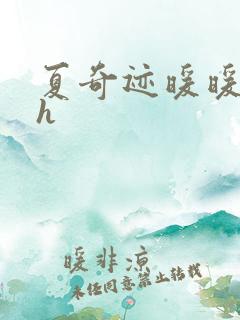 夏奇迹暖暖
h
暖非凉
未经同意禁止转载